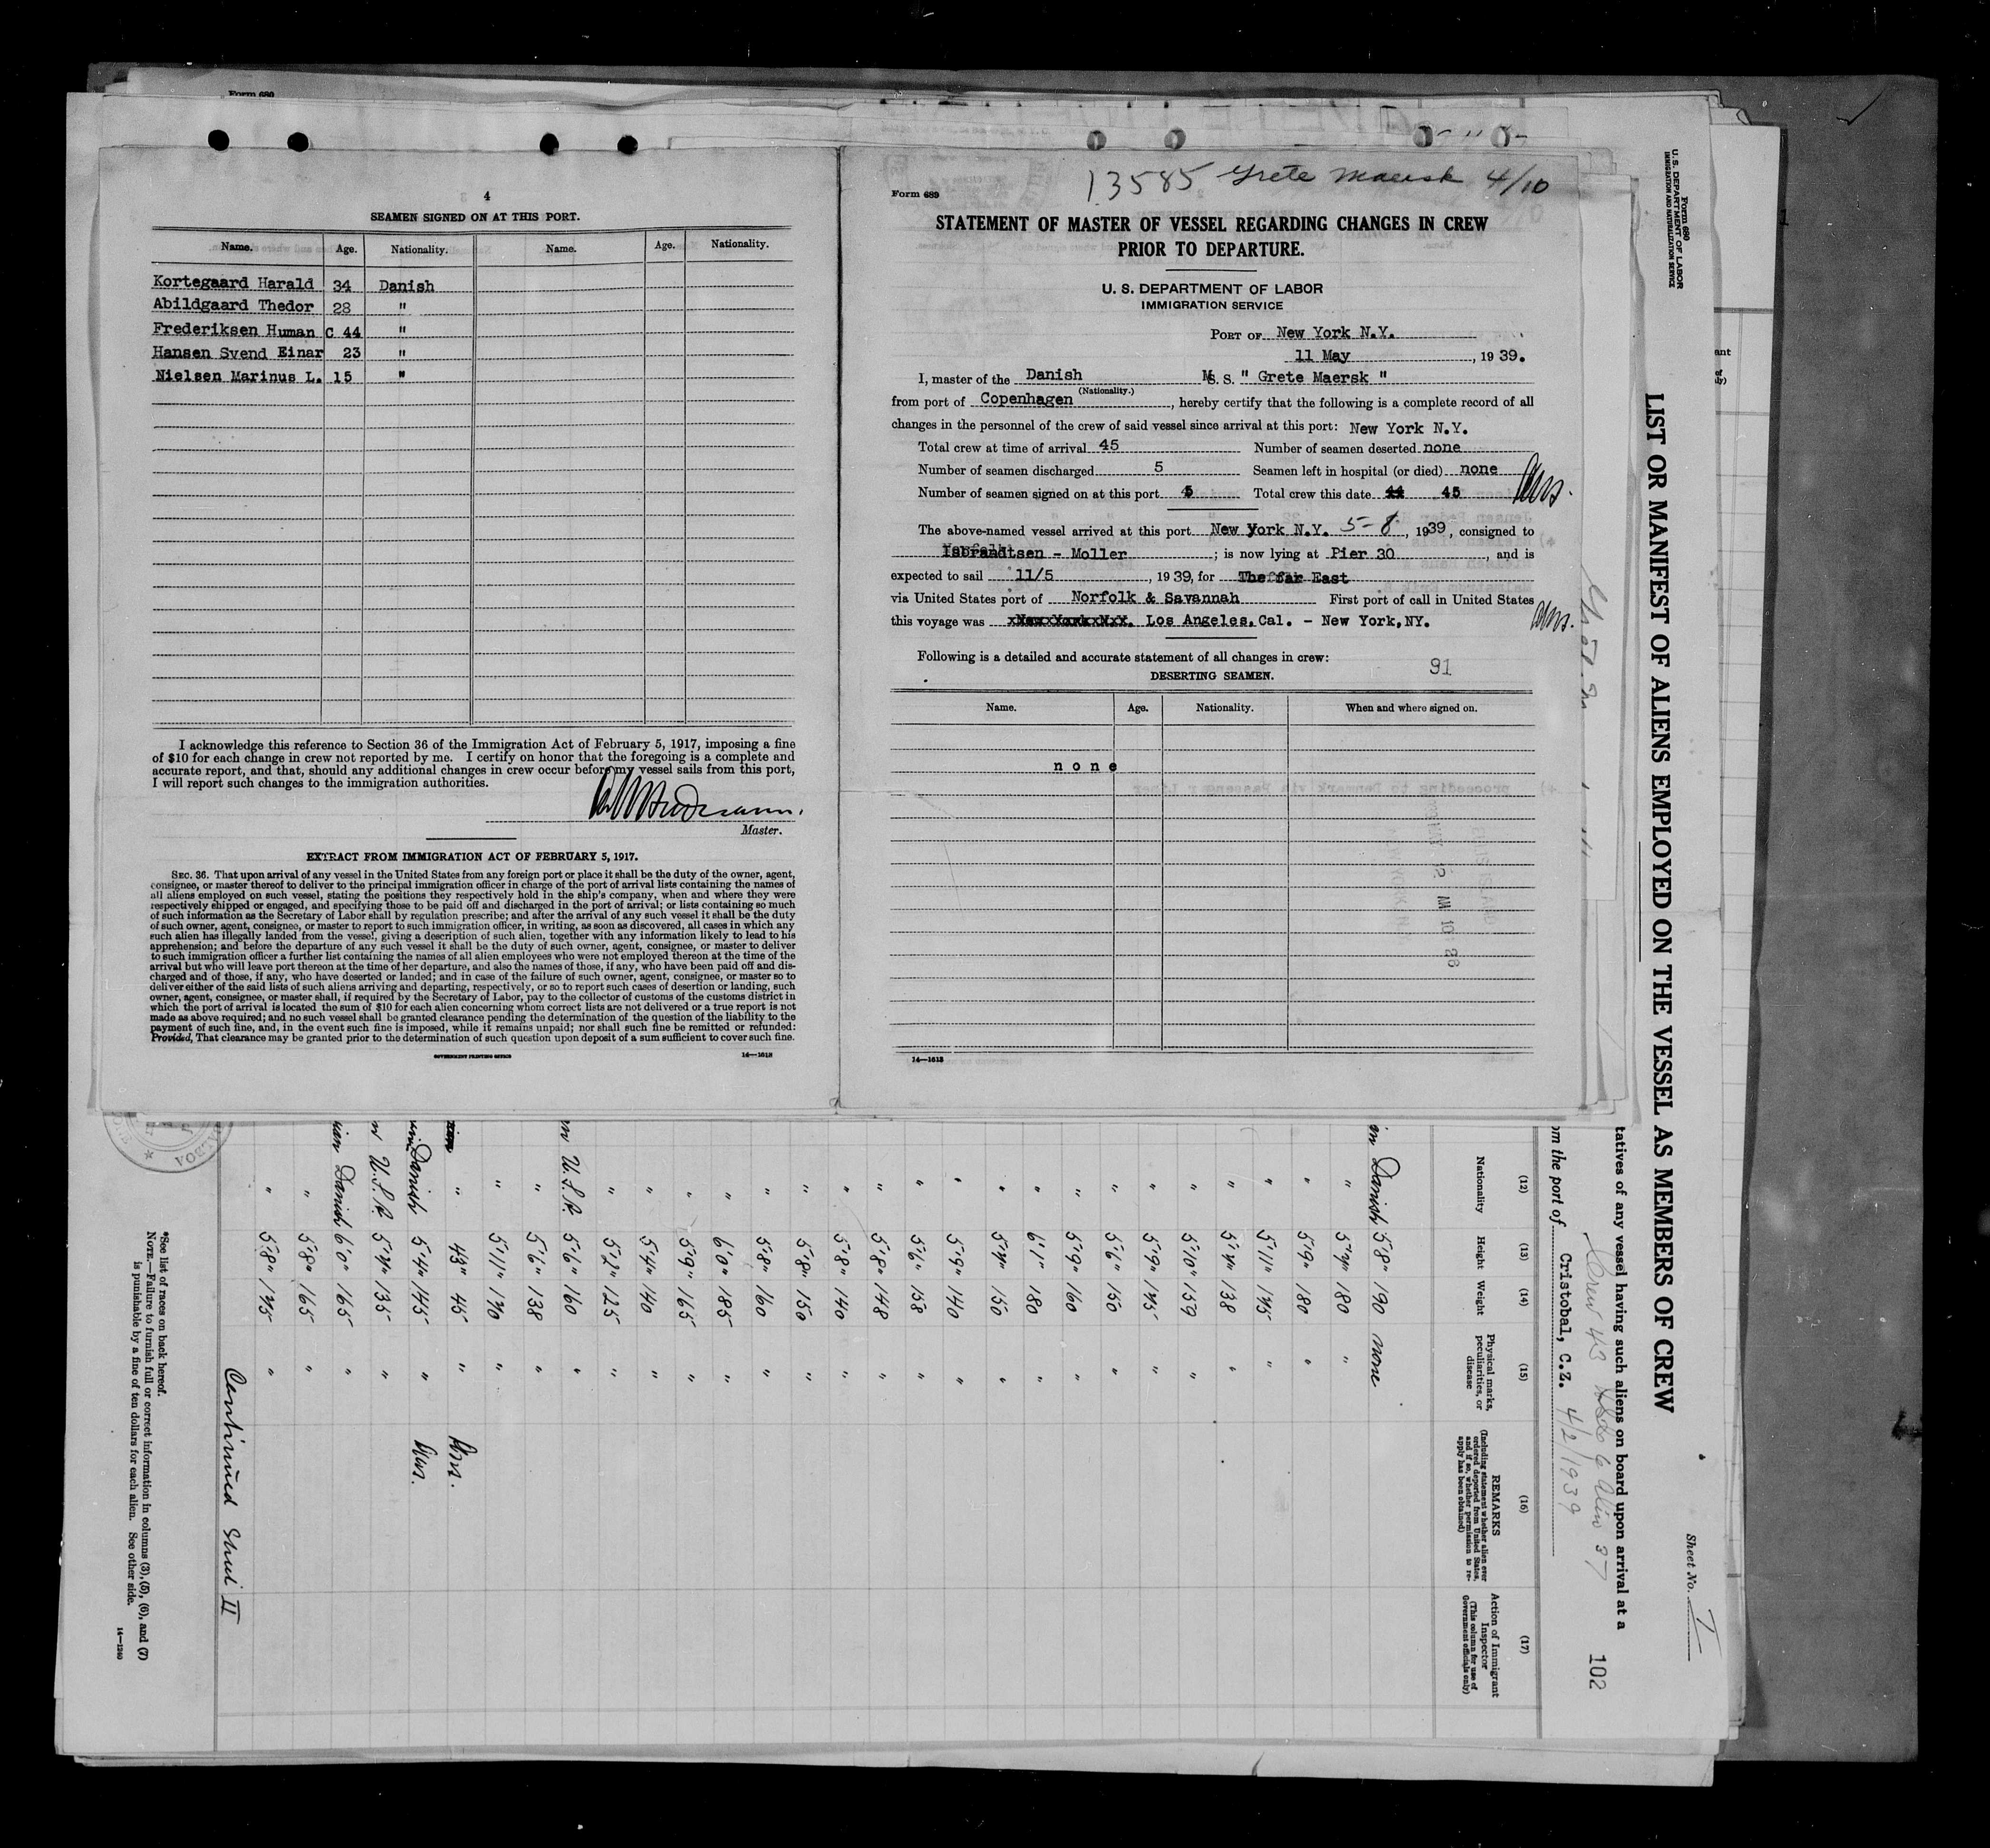 Form 680
4
SEAMEN SIGNED ON AT THIS PORT.
Name. Age. Nationality. Name. Age. Nationality.
Kortegaard Harald 34 Danish
Abildgaard Thedor 28 "
Frederiksen Human C 44 "
Hansen Svend Einar 23 "
Nielsen Marinus L. 15 "
I acknowledge this reference to Section 36 of the Immigration Act of February 5, 1917, imposing a fine
of $10 for each change in crew not reported by me. I certify on honor that the foregoing is a complete and
accurate report, and that, should any additional changes in crew occur before my vessel sails from this port,
I will report such changes to the immigration authorities.
Master.
EXTRACT FROM IMMIGRATION ACT OF FEBRUARY 5, 1917.
SEC. 36. That upon arrival of any vessel in the United States from any foreign port or place it shall be the duty of the owner, agent,
consignee, or master thereof to deliver to the principal immigration officer in charge of the port of arrival lists containing the names of
all aliens employed on such vessel, stating the positions they respectively hold in the ship's company, when and where they were
respectively shipped or engaged, and specifying those to be paid off and discharged in the port of arrival; or lists containing so much
of such information as the Secretary of Labor shall by regulation prescribe; and after the arrival of any such vessel it shall be the duty
of such owner, agent, consignee, or master to report to such immigration officer, in writing, as soon as discovered, all cases in which any
such alien has illegally landed from the vessel, giving a description of such alien, together with any information likely to lead to his
apprehension; and before the departure of any such vessel it shall be the duty of such owner, agent, consignee, or master to deliver
to such immigration officer a further list containing the names of all alien employees who were not employed thereon at the time of the
arrival but who will leave port thereon at the time of her departure, and also the names of those, if any, who have been paid off and dis-
charged and of those, if any, who have deserted or landed; and in case of the failure of such owner, agent, consignee, or master so to
deliver either of the said lists of such aliens arriving and departing, respectively, or so to report such cases of desertion or landing, such
owner, agent, consignee, or master shall, if required by the Secretary of Labor, pay to the collector of customs of the customs district in
which the port of arrival is located the sum of $10 for each alien concerning whom correct lists are not delivered or a true report is not
made as above required; and no such vessel shall be granted clearance pending the determination of the question of the liability to the
payment of such fine, and, in the event such fine is imposed, while it remains unpaid; nor shall such fine be remitted or refunded:
Provided, That clearance may be granted prior to the determination of such question upon deposit of a sum sufficient to cover such fine.
GOVERNMENT PRINTING OFFICE 14—1613
13585 Grete Maersk 4/10
Form 689
STATEMENT OF MASTER OF VESSEL REGARDING CHANGES IN CREW
PRIOR TO DEPARTURE.
U. S. DEPARTMENT OF LABOR
IMMIGRATION SERVICE
PORT OF New York N.Y.
11 May , 19 39.
I, master of the Danish M. S. " Grete Maersk "
(Nationality.)
from port of Copenhagen , hereby certify that the following is a complete record of all
changes in the personnel of the crew of said vessel since arrival at this port: New York N.Y.
Total crew at time of arrival 45 Number of seamen deserted none
Number of seamen discharged 5 Seamen left in hospital (or died) none
Number of seamen signed on at this port 5 Total crew this date 44 45
The above-named vessel arrived at this port New York N.Y. 5-8 , 1939, consigned to
Isbrandtsen - Moller ; is now lying at Pier 30 , and is
expected to sail 11/5 , 1939, for The far East
via United States port of Norfolk & Savannah First port of call in United States
this voyage was xNewxYorkxNxY. Los Angeles, Cal. - New York, NY.
Following is a detailed and accurate statement of all changes in crew:
91
DESERTING SEAMEN.
Name. Age. Nationality. When and where signed on.
none
14—1613
Form 680
U. S. DEPARTMENT OF LABOR
IMMIGRATION AND NATURALIZATION SERVICE
LIST OR MANIFEST OF ALIENS EMPLOYED ON THE VESSEL AS MEMBERS OF CREW
Sheet No. I
tatives of any vessel having such aliens on board upon arrival at a
102
Crew 43
om the port of Cristobal, C.Z. 4/2/1939
(12) (13) (14) (15) (16) (17)
Nationality Height Weight Physical marks, peculiarities, or disease REMARKS (Including statement whether alien ever ordered deported from United States, and if so, whether permission to re-apply has been obtained) Action of Immigrant Inspector (This column for use of Government officials only)
Danish 5'8" 190 none
" 5'7" 180 "
" 5'9" 180 "
" 5'11" 175 "
" 5'7" 138 "
" 5'10" 159 "
" 5'9" 175 "
" 5'6" 150 "
" 5'9" 160 "
" 6'1" 180 "
" 5'7" 150 "
" 5'9" 140 "
" 5'6" 158 "
" 5'8" 148 "
" 5'8" 140 "
" 5'8" 150 "
" 5'8" 160 "
" 6'0" 185 "
" 5'9" 165 "
" 5'4" 140 "
" 5'2" 125 "
U.S.A. 5'6" 160 "
" 5'6" 138 "
" 5'11" 170 "
" "
Danish 5'4" 145 "
U.S.A. 5'7" 135 "
Danish 6'0" 165 "
" 5'8" 165 "
" 5'8" 175 "
Continued Sheet II
*See list of races on back hereof.
NOTE.—Failure to furnish full or correct information in columns (3), (5), (6), and (7)
is punishable by a fine of ten dollars for each alien. See other side.
14—1240